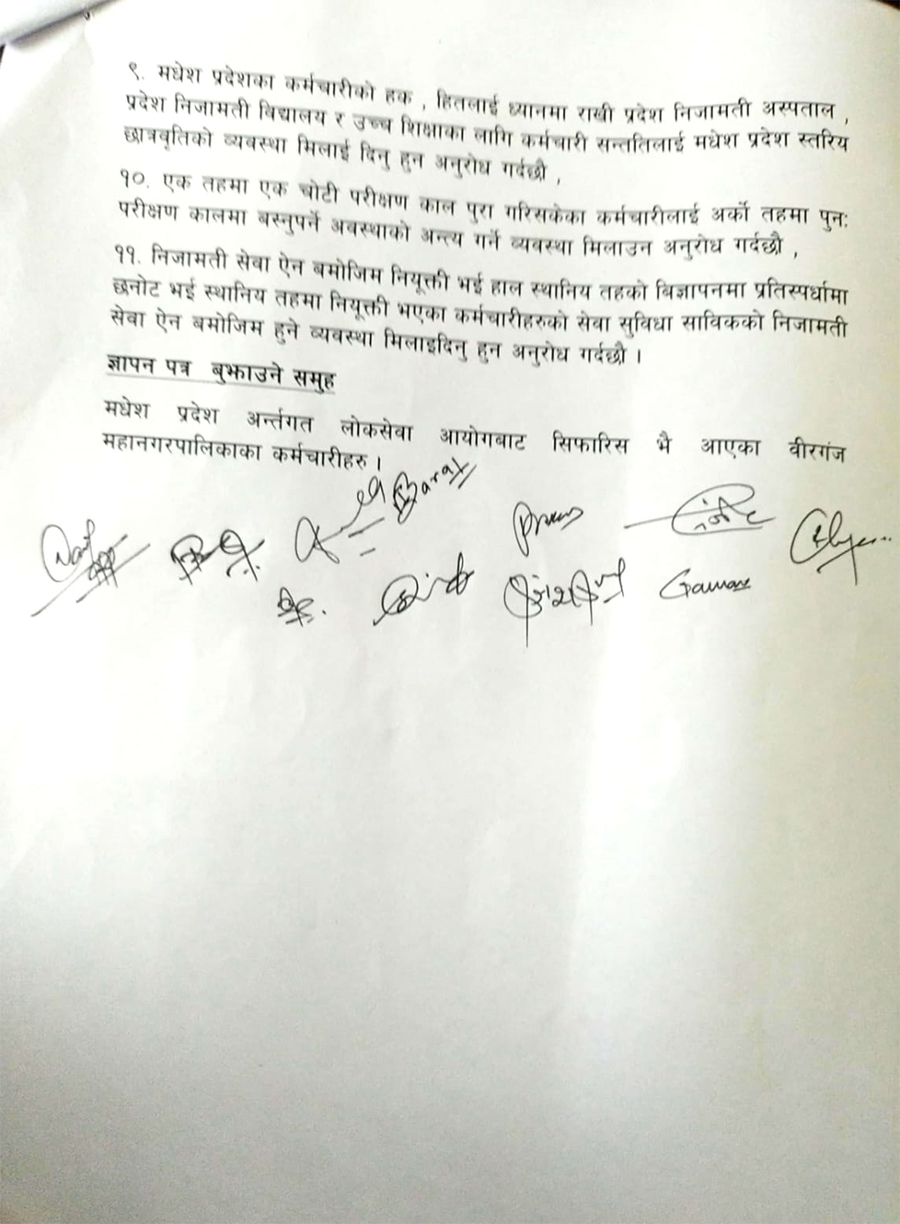 ९. मधेश प्रदेशका कर्मचारीको हक , हितलाई ध्यानमा राखी प्रदेश निजामती अस्पताल ,
प्रदेश निजामती विद्यालय र उच्च शिक्षाका लागि कर्मचारी सन्ततिलाई मधेश प्रदेश स्तरिय
छात्रवृतिको व्यवस्था मिलाई दिनु हुन अनुरोध गर्दछौ ,
१०. एक तहमा एक चोटी परीक्षण काल पुरा गरिसकेका कर्मचारीलाई अर्को तहमा पुनः
परीक्षण कालमा बस्नुपर्ने अवस्थाको अन्त्य गर्ने व्यवस्था मिलाउन अनुरोध गर्दछौ ,
११. निजामती सेवा ऐन बमोजिम नियूक्ती भई हाल स्थानिय तहको बिज्ञापनमा प्रतिस्पर्धामा
छनोट भई स्थानिय तहमा नियूक्ती भएका कर्मचारीहरुको सेवा सुविधा साविकको निजामती
सेवा ऐन बमोजिम हुने व्यवस्था मिलाइदिनु हुन अनुरोध गर्दछौ ।
ज्ञापन पत्र बुझाउने समुह
मधेश प्रदेश अर्न्तगत लोकसेवा आयोगबाट सिफारिस भै आएका वीरगंज
महानगरपालिकाका कर्मचारीहरु ।